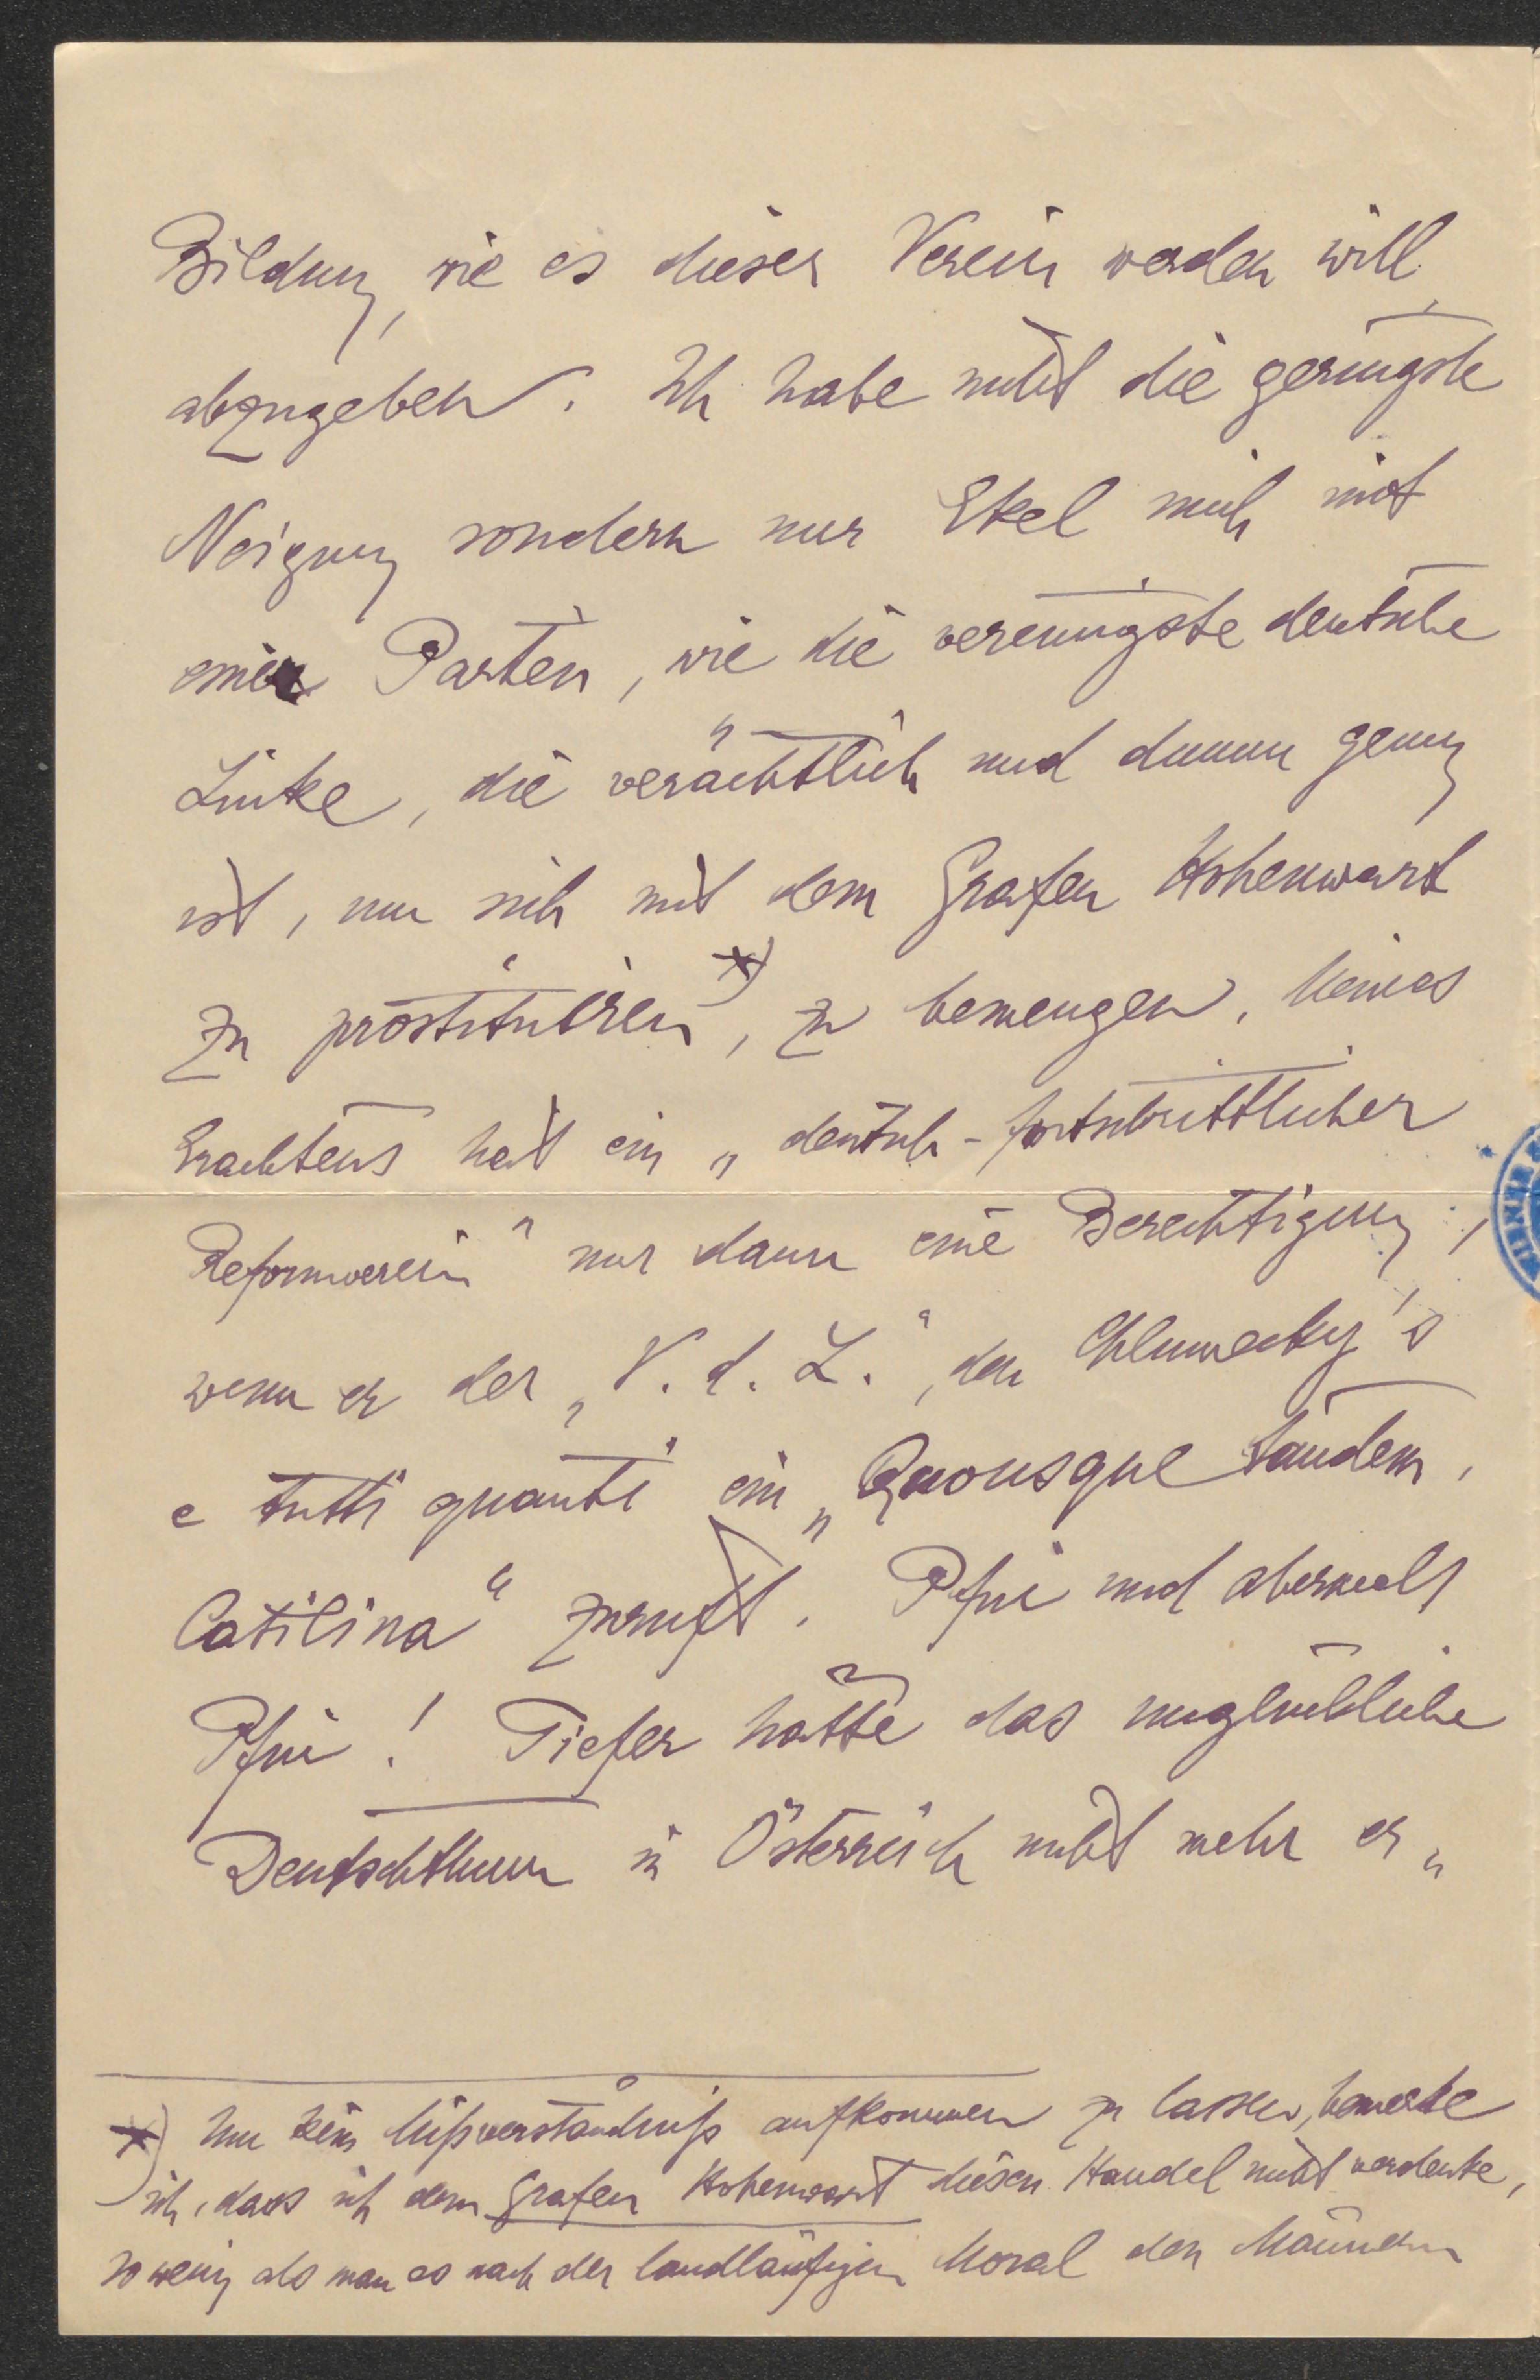 Bildung, wie es dieser Verein werden will,
abzugeben. Ich habe nicht die geringste
Neigung sondern nur Ekel mich mit
einer Partei, wie die vereinigste deutsche
Linke, die verächtlich und dumm genug
ist, um sich mit dem Grafen Hohenwart
zu prostituiren *), zu bemengen. Meines
Erachtens hat ein „deutsch-fortschrittlicher
Reformverein“ nur dann eine Berechtigung,
wenn er der „V. d. L.“, den Chlumecky's
e tutti quanti ein „Quousque tandem,
Catilina“ zuruft. Pfui und abermals
Pfui! Tiefer hätte das unglückliche
Deutschthum in Österreich nicht mehr er„
*) Um kein Mißverständniß aufkommen zu lassen, bemerke
ich, dass ich dem Grafen Hohenwart diesen Handel nicht verdenke,
so wenig als man es nach der landläufigen Moral den Männern